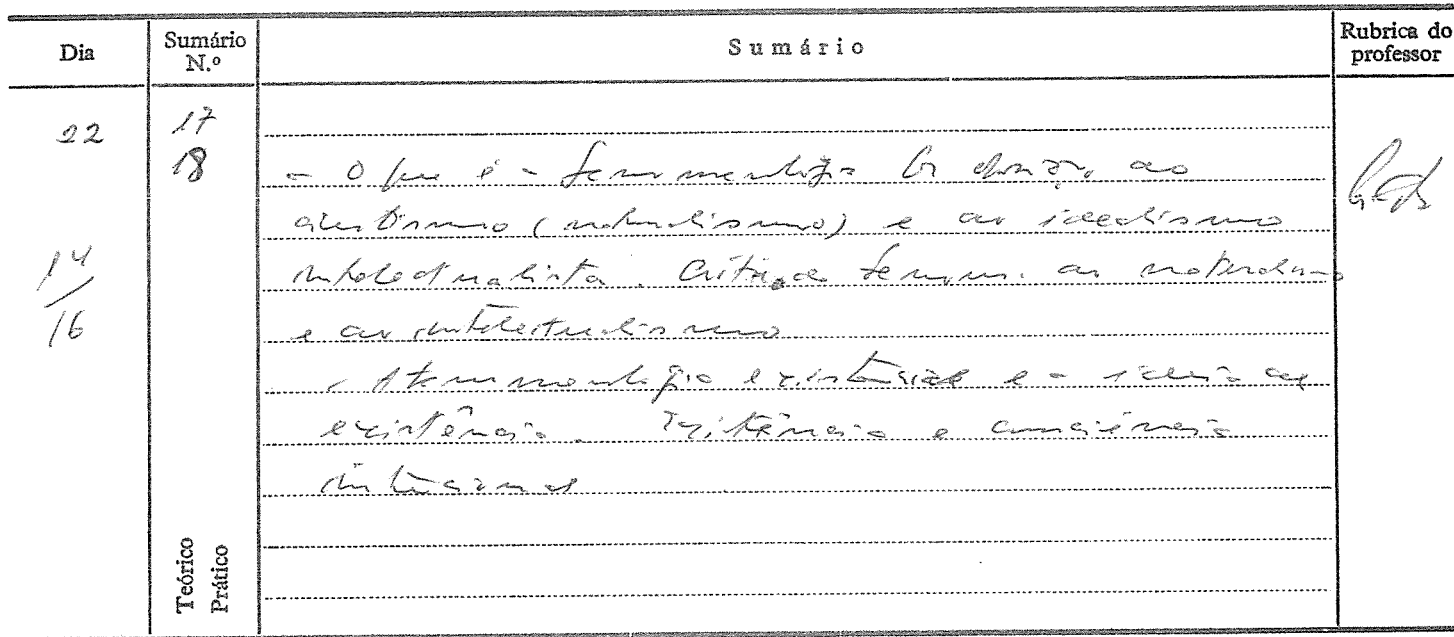 Dia
Sumário N.º
Sumário
Rubrica do professor
22
17
18
- O que é a fenomenologia. Oposição ao
cientismo (naturalismo) e ao idealismo
intelectualista. Crítica fenom. ao naturalismo
e ao intelectualismo
- A fenomenologia existencial e a ideia de
existência. Existência e consciência
intencional
14/16
Teórico
Prático